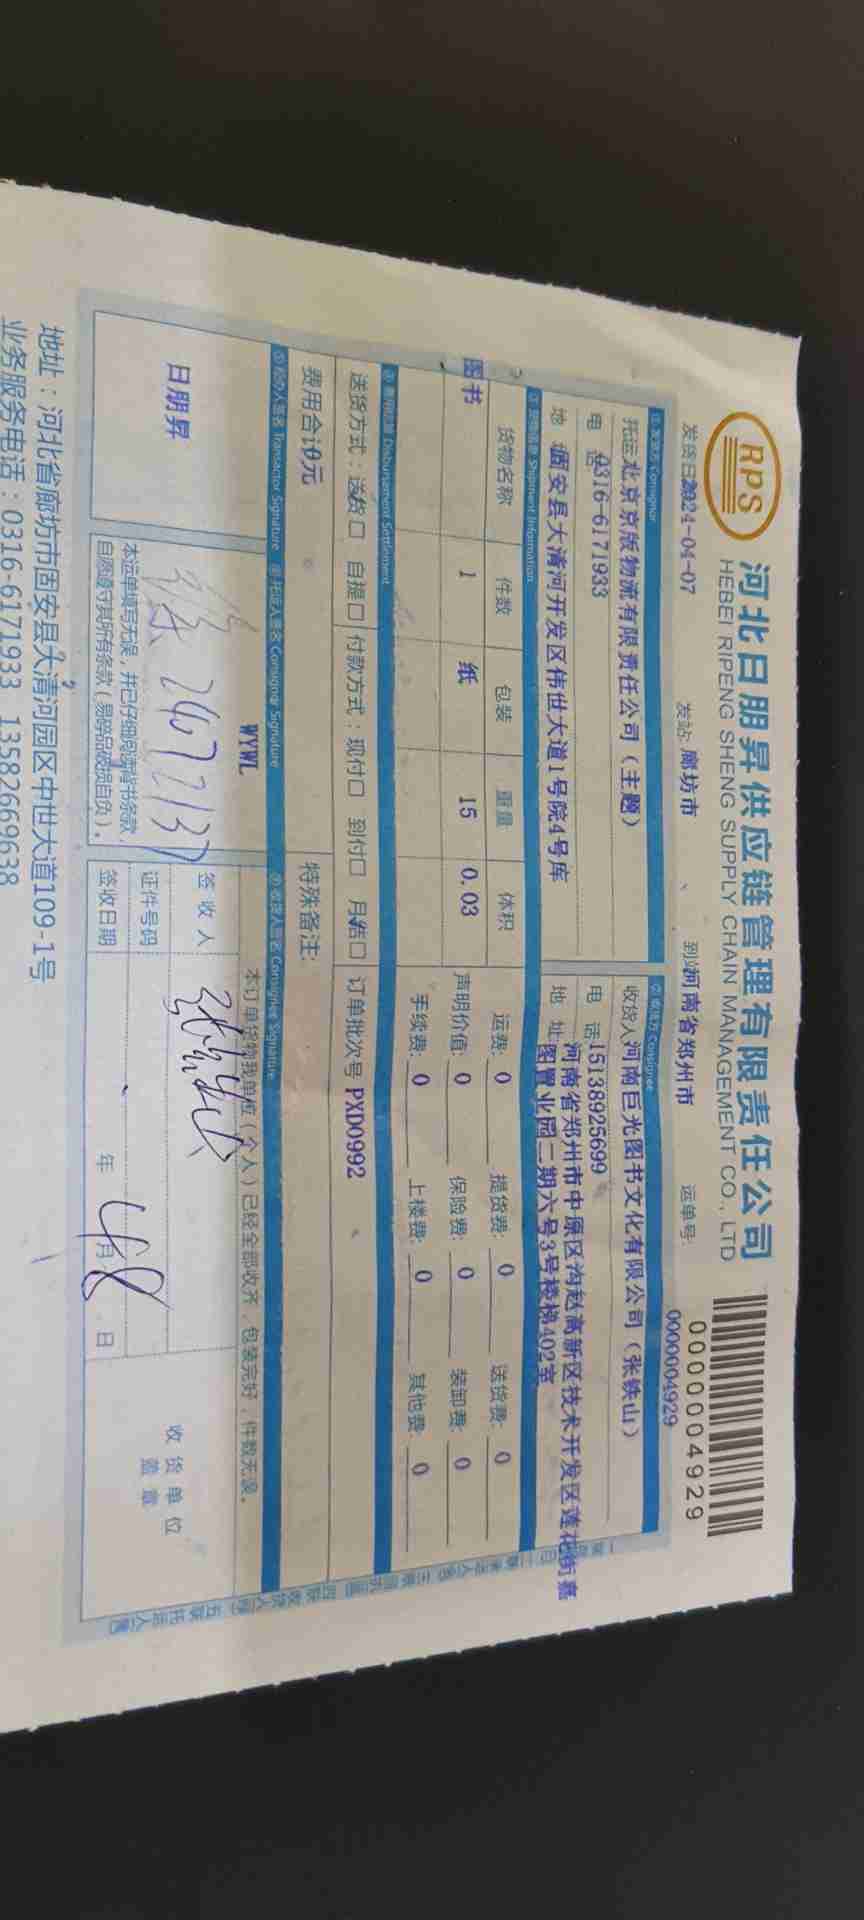 RPS
河北日朋昇供应链管理有限责任公司
HEBEI RIPENG SHENG SUPPLY CHAIN MANAGEMENT CO., LTD
0000004929
发货日 2024-04-07 发站: 廊坊市 到站 河南省郑州市 运单号: 0000004929
①发货方 Consignor
托运 北京京版物流有限责任公司(主题)
电 话 0316-6171933
地 固安县大清河开发区伟世大道1号院4号库
②收货方 Consignee
收货人 河南巨光图书文化有限公司(张铁山)
电 话 15138925699
地 址 河南省郑州市中原区沟赵高新区技术开发区莲花街嘉
图置业园二期六号3号楼梯402室
③货物信息 Shipment Information
货物名称 件数 包装 重量 体积
图书 1 纸 15 0.03
运费: 0 提货费: 0 送货费: 0
声明价值: 0 保险费: 0 装卸费: 0
手续费: 0 上楼费: 0 其他费: 0
Disbursement Settlement
送货方式: 送货□ 自提□ 付款方式: 现付□ 到付□ 月结□ 订单批次号 PXD0992
费用合计0元 特殊备注:
⑤经办人签名 Transactor Signature
日朋昇
⑥托运人签名 Consignor Signature
WYWL
本运单填写无误,并已仔细阅读背书条款,
自愿遵守其所有条款(易碎品破损自负)。
⑦收货人签名 Consignee Signature
本订单货物我单位(个人)已经全部收齐,包装完好,件数无误。
签收人
证件号码
签收日期 年 4月8日
收货单位
盖章
地址:河北省廊坊市固安县大清河园区中世大道109-1号
业务服务电话:0316-6171933 13582669638